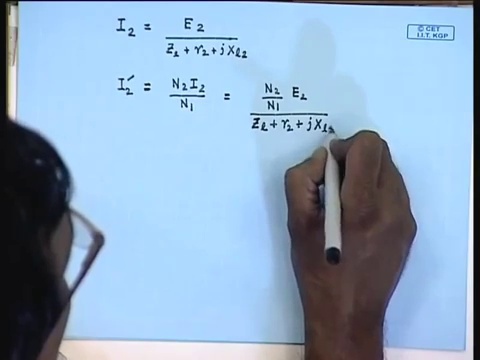 © CET
I.I.T. KGP
I₂ = E₂ / (Z_L + r₂ + jX_l2)
I₂′ = N₂I₂ / N₁ = (N₂/N₁) E₂ / (Z_L + r₂ + jX_l2)